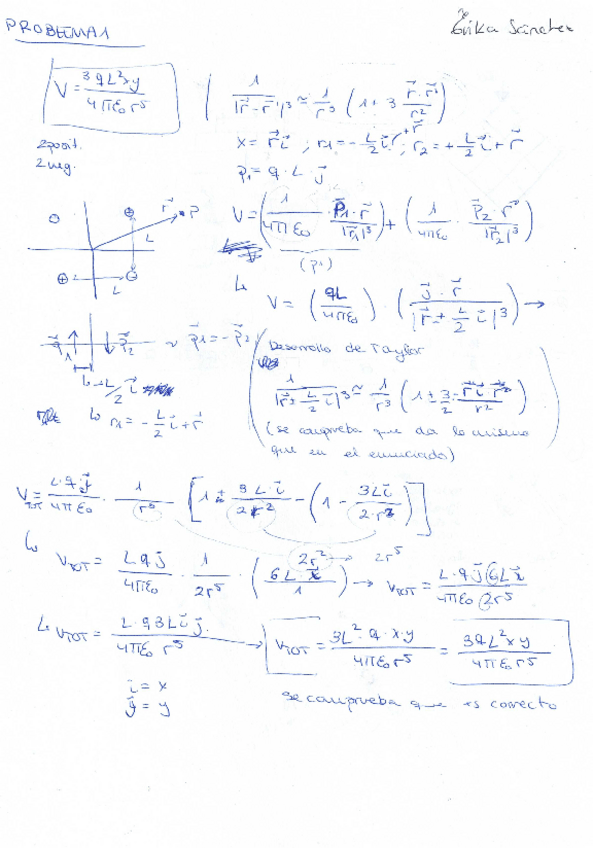 PROBLEMA 1
Erika Sánchez
V = 3qL²xy / 4πε₀r⁵
1/|r⃗ - r⃗'|³ ≃ 1/r³ (1 + 3 r⃗·r⃗'/r²)
2 posit.
2 neg.
x = r⃗ i⃗ ; r₁ = -L/2 i⃗ + r⃗ ; r₂ = +L/2 i⃗ + r⃗
p⃗₁ = q · L · j⃗
r⃗ P
L
L
V = (1/4πε₀ · p⃗₁·r⃗/|r₁|³) + (1/4πε₀ · p⃗₂·r⃗/|r⃗₂|³)
(p₁)
↳ V = (qL/4πε₀) · (j⃗ · r⃗ / |r⃗ + L/2 i⃗|³) →
p⃗₂ ~ p⃗₁ = -p⃗₂
↳ -L/2 i⃗
↳ r₁ = -L/2 i⃗ + r⃗
Desarrollo de Taylor
1/|r⃗ ± L/2 i⃗|³ ≃ 1/r³ (1 ± 3/2 r⃗ i⃗ · r⃗/r²)
(se comprueba que da lo mismo
que en el enunciado)
V_TOT = L·q·j⃗/4πε₀ · 1/r³ [1 + 3L·i⃗/2r² - (1 - 3Li⃗/2·r²)]
2r² → 2r⁵
↳ V_TOT = Lqj⃗/4πε₀ · 1/2r⁵ · (6L·x⃗/1) → V_TOT = L·q j⃗ 6Lx⃗ / 4πε₀ 2r⁵
↳ V_TOT = L·q3Li⃗j⃗ / 4πε₀ r⁵ → V_TOT = 3L²·q·x·y / 4πε₀r⁵ = 3qL²xy / 4πε₀r⁵
i⃗ = x
j⃗ = y
se comprueba que es correcto